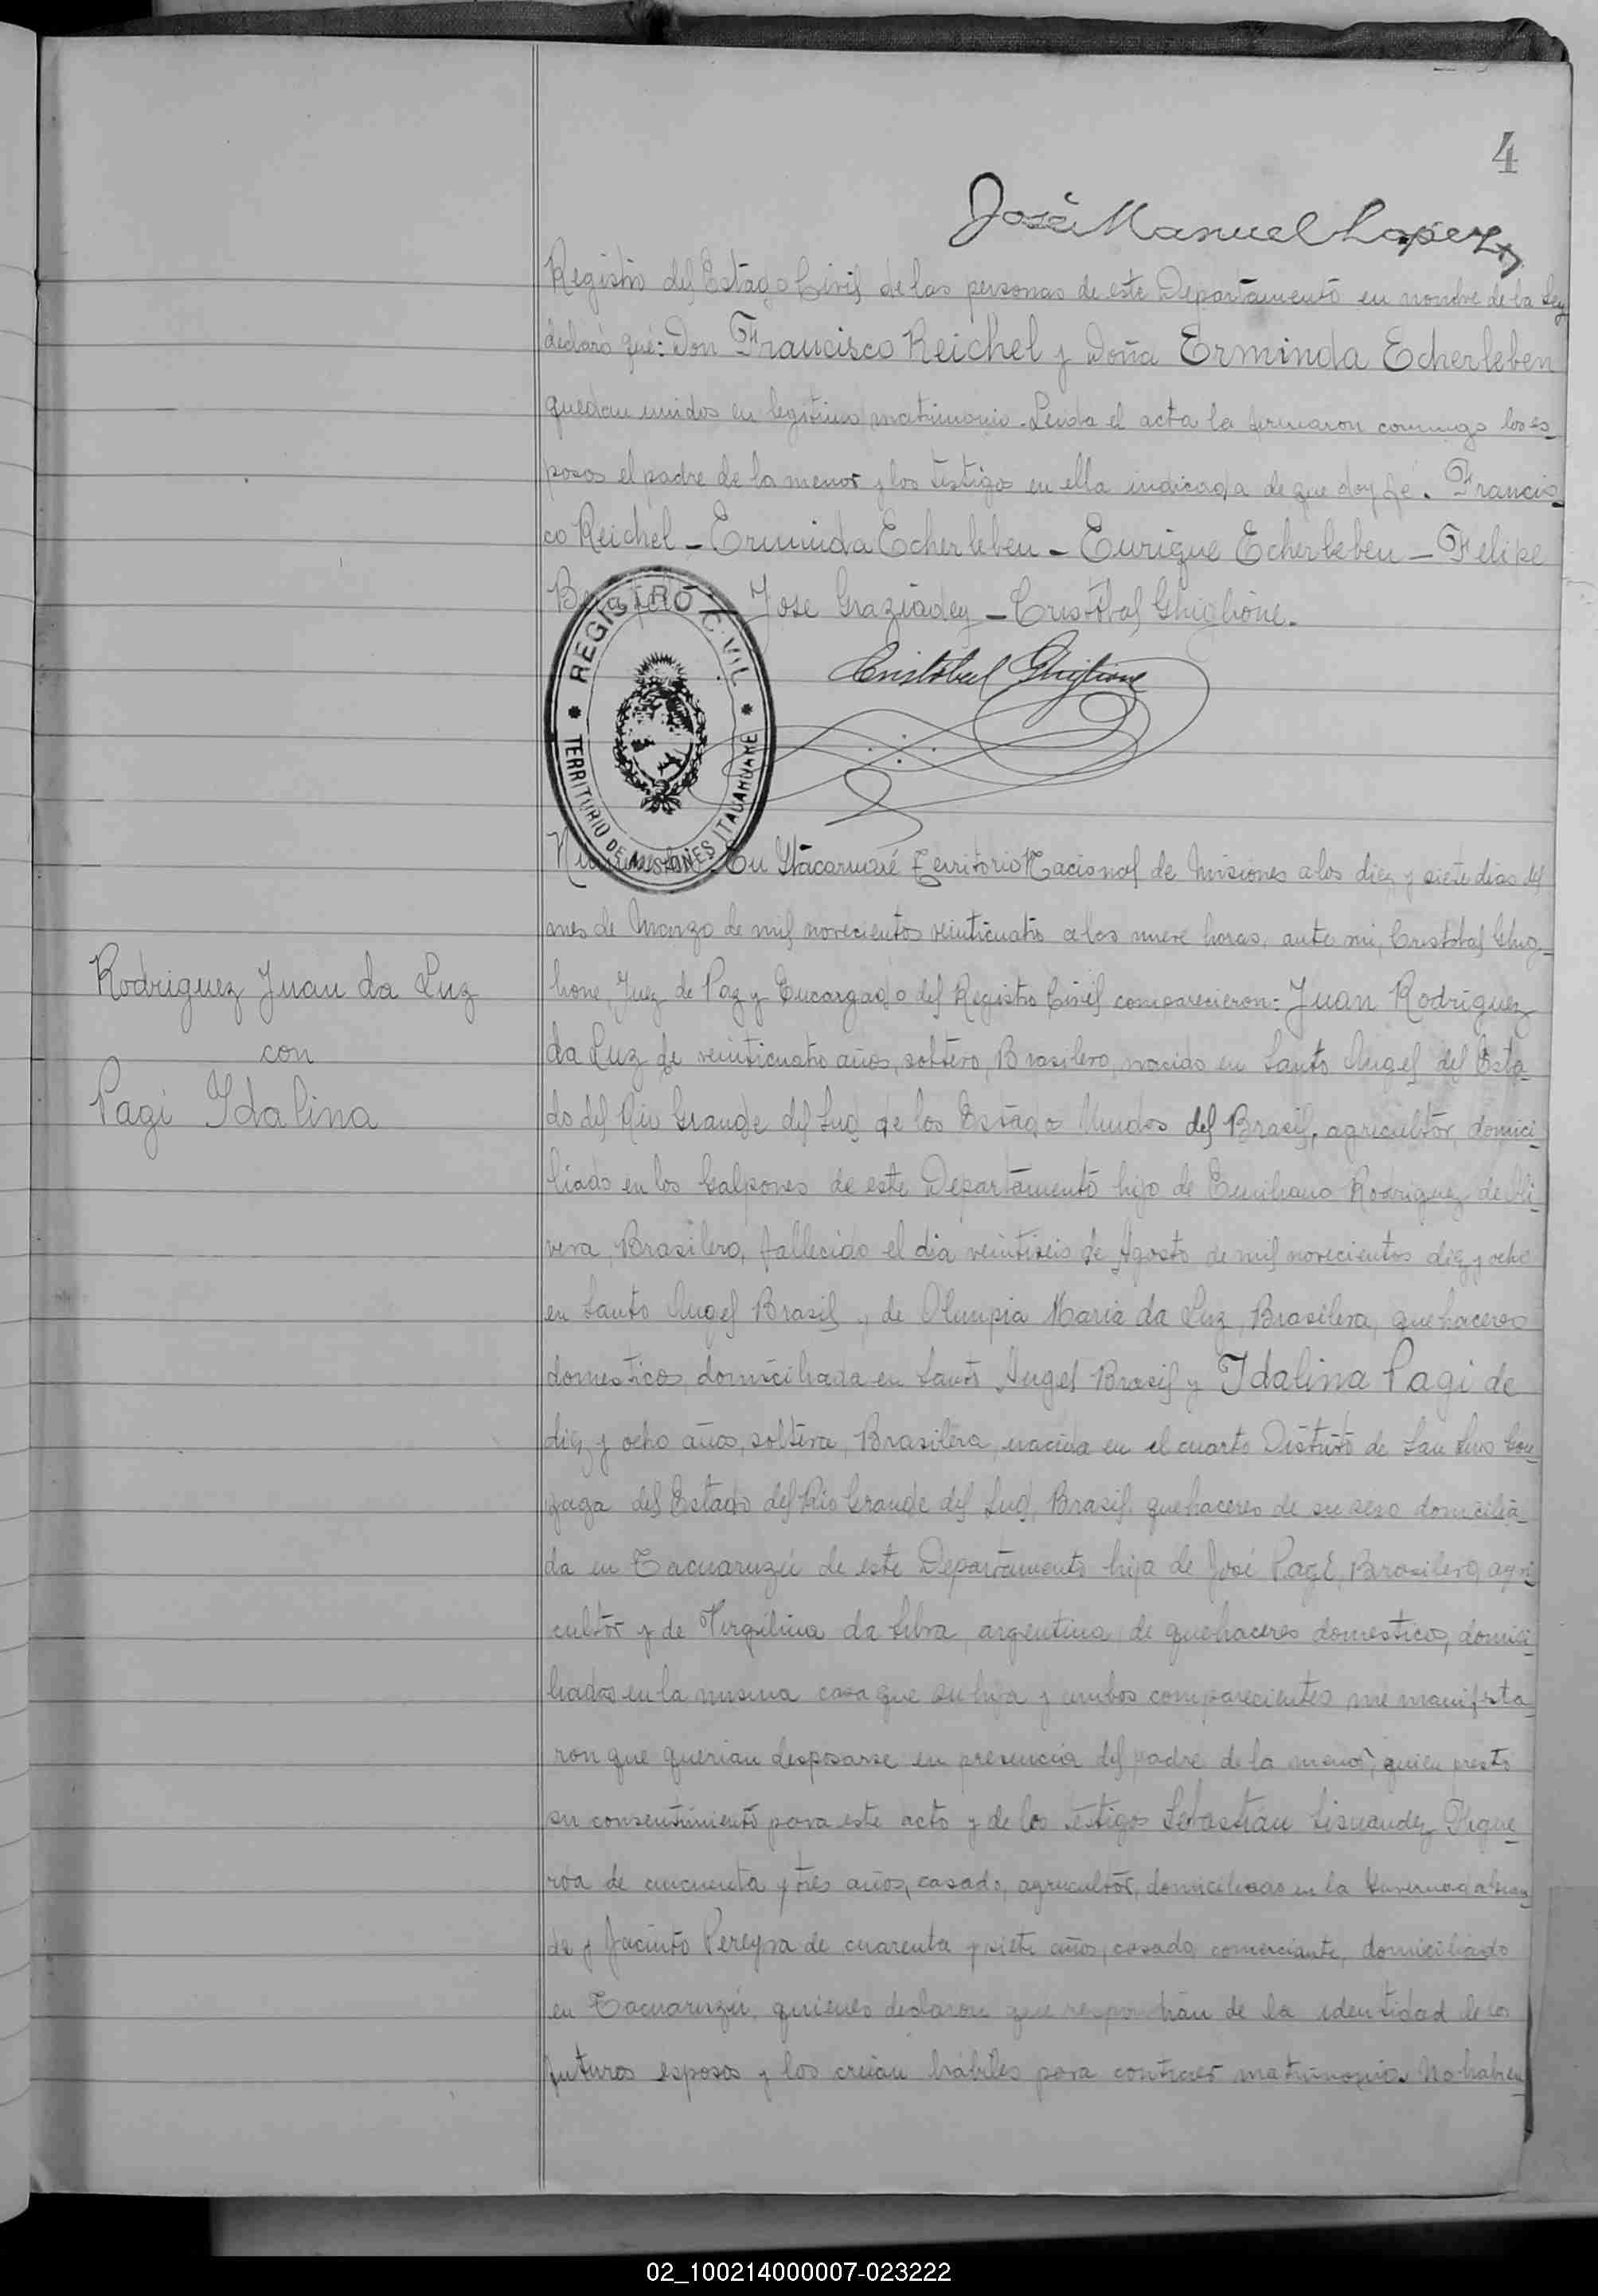 4
José Manuel Lopez
Registro del Estago Civil de las personas de este Departamento en nombre de la Ley
declaro que: Don Francisco Reichel y Doña Erminda Echerleben
quedan unidos en legitimo matrimonio. Leida el acta la firmaron conmigo los es-
posos el padre de la menor y los testigos en ella indicada de que doy fé. Francis-
co Reichel - Erminda Echerleben - Enrique Echerleben - Felipe
Jose Graziadey - Cristobal Ghiglione.
Cristobal Ghiglione
REGISTRO CIVIL
TERRITORIO DE MISIONES ITACARUARE
En Itacaruaré Territorio Nacional de Misiones a los diez y siete dias del
mes de Marzo de mil novecientos veinticuatro a las nueve horas, ante mi, Cristobal Ghig-
lione, Juez de Paz y Encargado del Registro Civil comparecieron: Juan Rodriguez
da Luz de veinticuatro años, soltero, Brasilero, nacido en Santo Angel del Esta-
do del Rio Grande del Sud de los Estados Unidos del Brasil, agricultor, domici-
liado en los Galpones de este Departamento hijo de Emiliano Rodriguez de Oli-
vera, Brasilero, fallecido el dia veintiseis de Agosto de mil novecientos diez y ocho
en Santo Angel Brasil y de Olimpia Maria da Luz, Brasilera, quehaceres
domesticos domiciliada en Santo Angel Brasil y Idalina Pagi de
diez y ocho años, soltera, Brasilera, nacida en el cuarto Distrito de San Luis Gon-
zaga del Estado del Rio Grande del Sud, Brasil, quehaceres de su sexo domicilia-
da en Tacuaruzú de este Departamento hija de José Pagi, Brasilero, agri-
cultor y de Virgilina da Silva, argentina de quehaceres domesticos, domici-
liados en la misma casa que su hija y ambos comparecientes me manifesta-
ron que querian desposarse en presencia del padre de la menor, quien presto
su consentimiento para este acto y de los testigos Sebastian Figue-
roa de cincuenta y tres años, casado, agricultor, domiciliado en la
de y Jacinto Pereyra de cuarenta y siete años, casado, comerciante, domiciliado
en Tacuaruzú, quienes declaron que respondian de la identidad de los
futuros esposos y los creian hábiles para contraer matrimonio. No habien-
Rodriguez Juan da Luz
con
Pagi Idalina
02_100214000007-023222